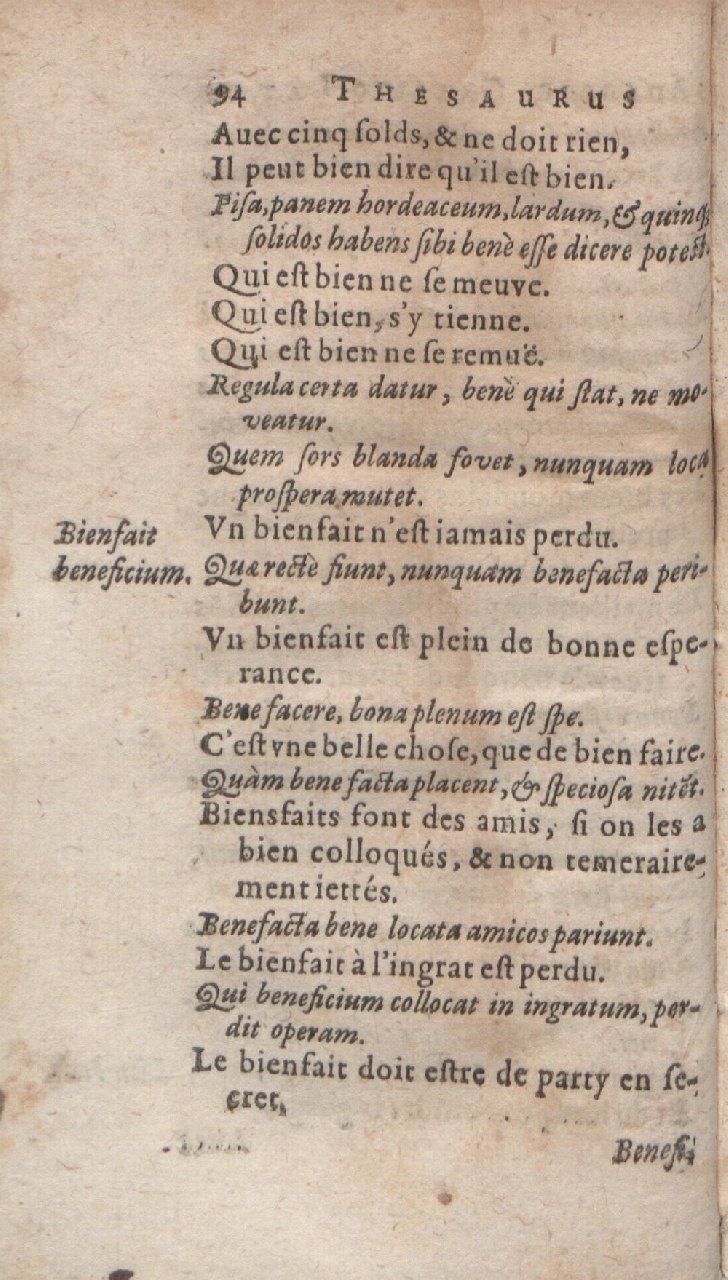 94 THESAURUS
Auec cinq ſolds, & ne doit rien,
Il peut bien dire qu'il eſt bien.
Piſa, panem hordeaceum, lardum, & quinq;
ſolidos habens ſibi benè eſſe dicere poteſt.
Qui eſt bien ne ſe meuve.
Qui eſt bien, s'y tienne.
Qui eſt bien ne ſe remuë.
Regula certa datur, benè qui ſtat, ne mo-
veatur.
Quem ſors blanda fovet, nunquam loca
proſpera mutet.
Bienfait
beneficium.
Vn bienfait n'eſt iamais perdu.
Quæ rectè fiunt, nunquam benefacta peri-
bunt.
Vn bienfait eſt plein de bonne eſpe-
rance.
Bene facere, bona plenum eſt ſpe.
C'eſt vne belle choſe, que de bien faire.
Quàm bene facta placent, & ſpecioſa nitẽt.
Biensfaits font des amis, ſi on les a
bien colloqués, & non temeraire-
ment iettés.
Benefacta bene locata amicos pariunt.
Le bienfait à l'ingrat eſt perdu.
Qui beneficium collocat in ingratum, per-
dit operam.
Le bienfait doit eſtre de party en ſe-
cret,
Benefi-